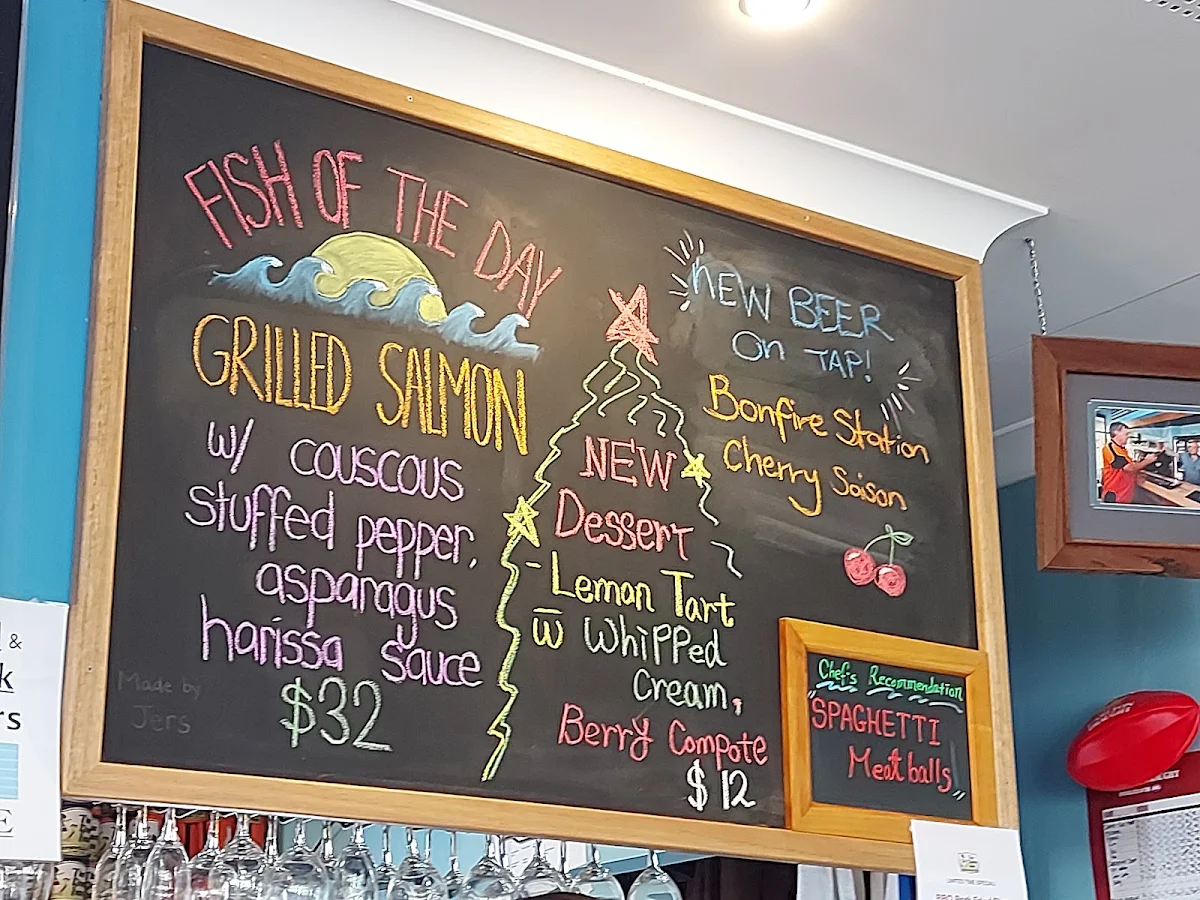 FISH OF THE DAY
GRILLED SALMON
w/ couscous
stuffed pepper,
asparagus
harissa sauce
$32
Made by
Jers
NEW
Dessert
- Lemon Tart
w̅ Whipped
Cream,
Berry Compote
$12
NEW BEER
On TAP!
Bonfire Station
Cherry Saison
Chef's Recommendation
"SPAGHETTI
Meatballs"
&
k
rs
E
LIMITED TIME SPECIAL